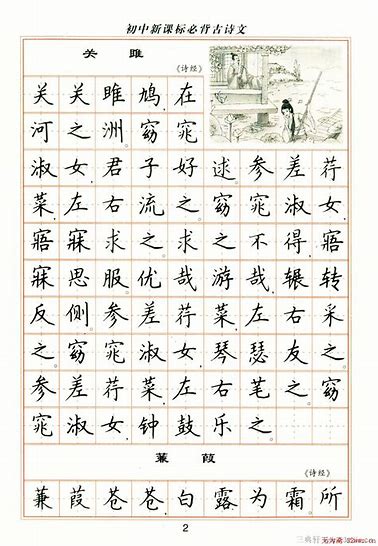 初中新课标必背古诗文
关 雎
《诗经》
关关雎鸠,在
河之洲。窈窕
淑女,君子好逑。参差荇
菜,左右流之。窈窕淑女,
寤寐求之。求之不得,寤
寐思服。优哉游哉,辗转
反侧。参差荇菜,左右采
之。窈窕淑女,琴瑟友之。
参差荇菜,左右笔之。窈
窕淑女,钟鼓乐之。
蒹 葭
《诗经》
蒹葭苍苍,白露为霜。所
2